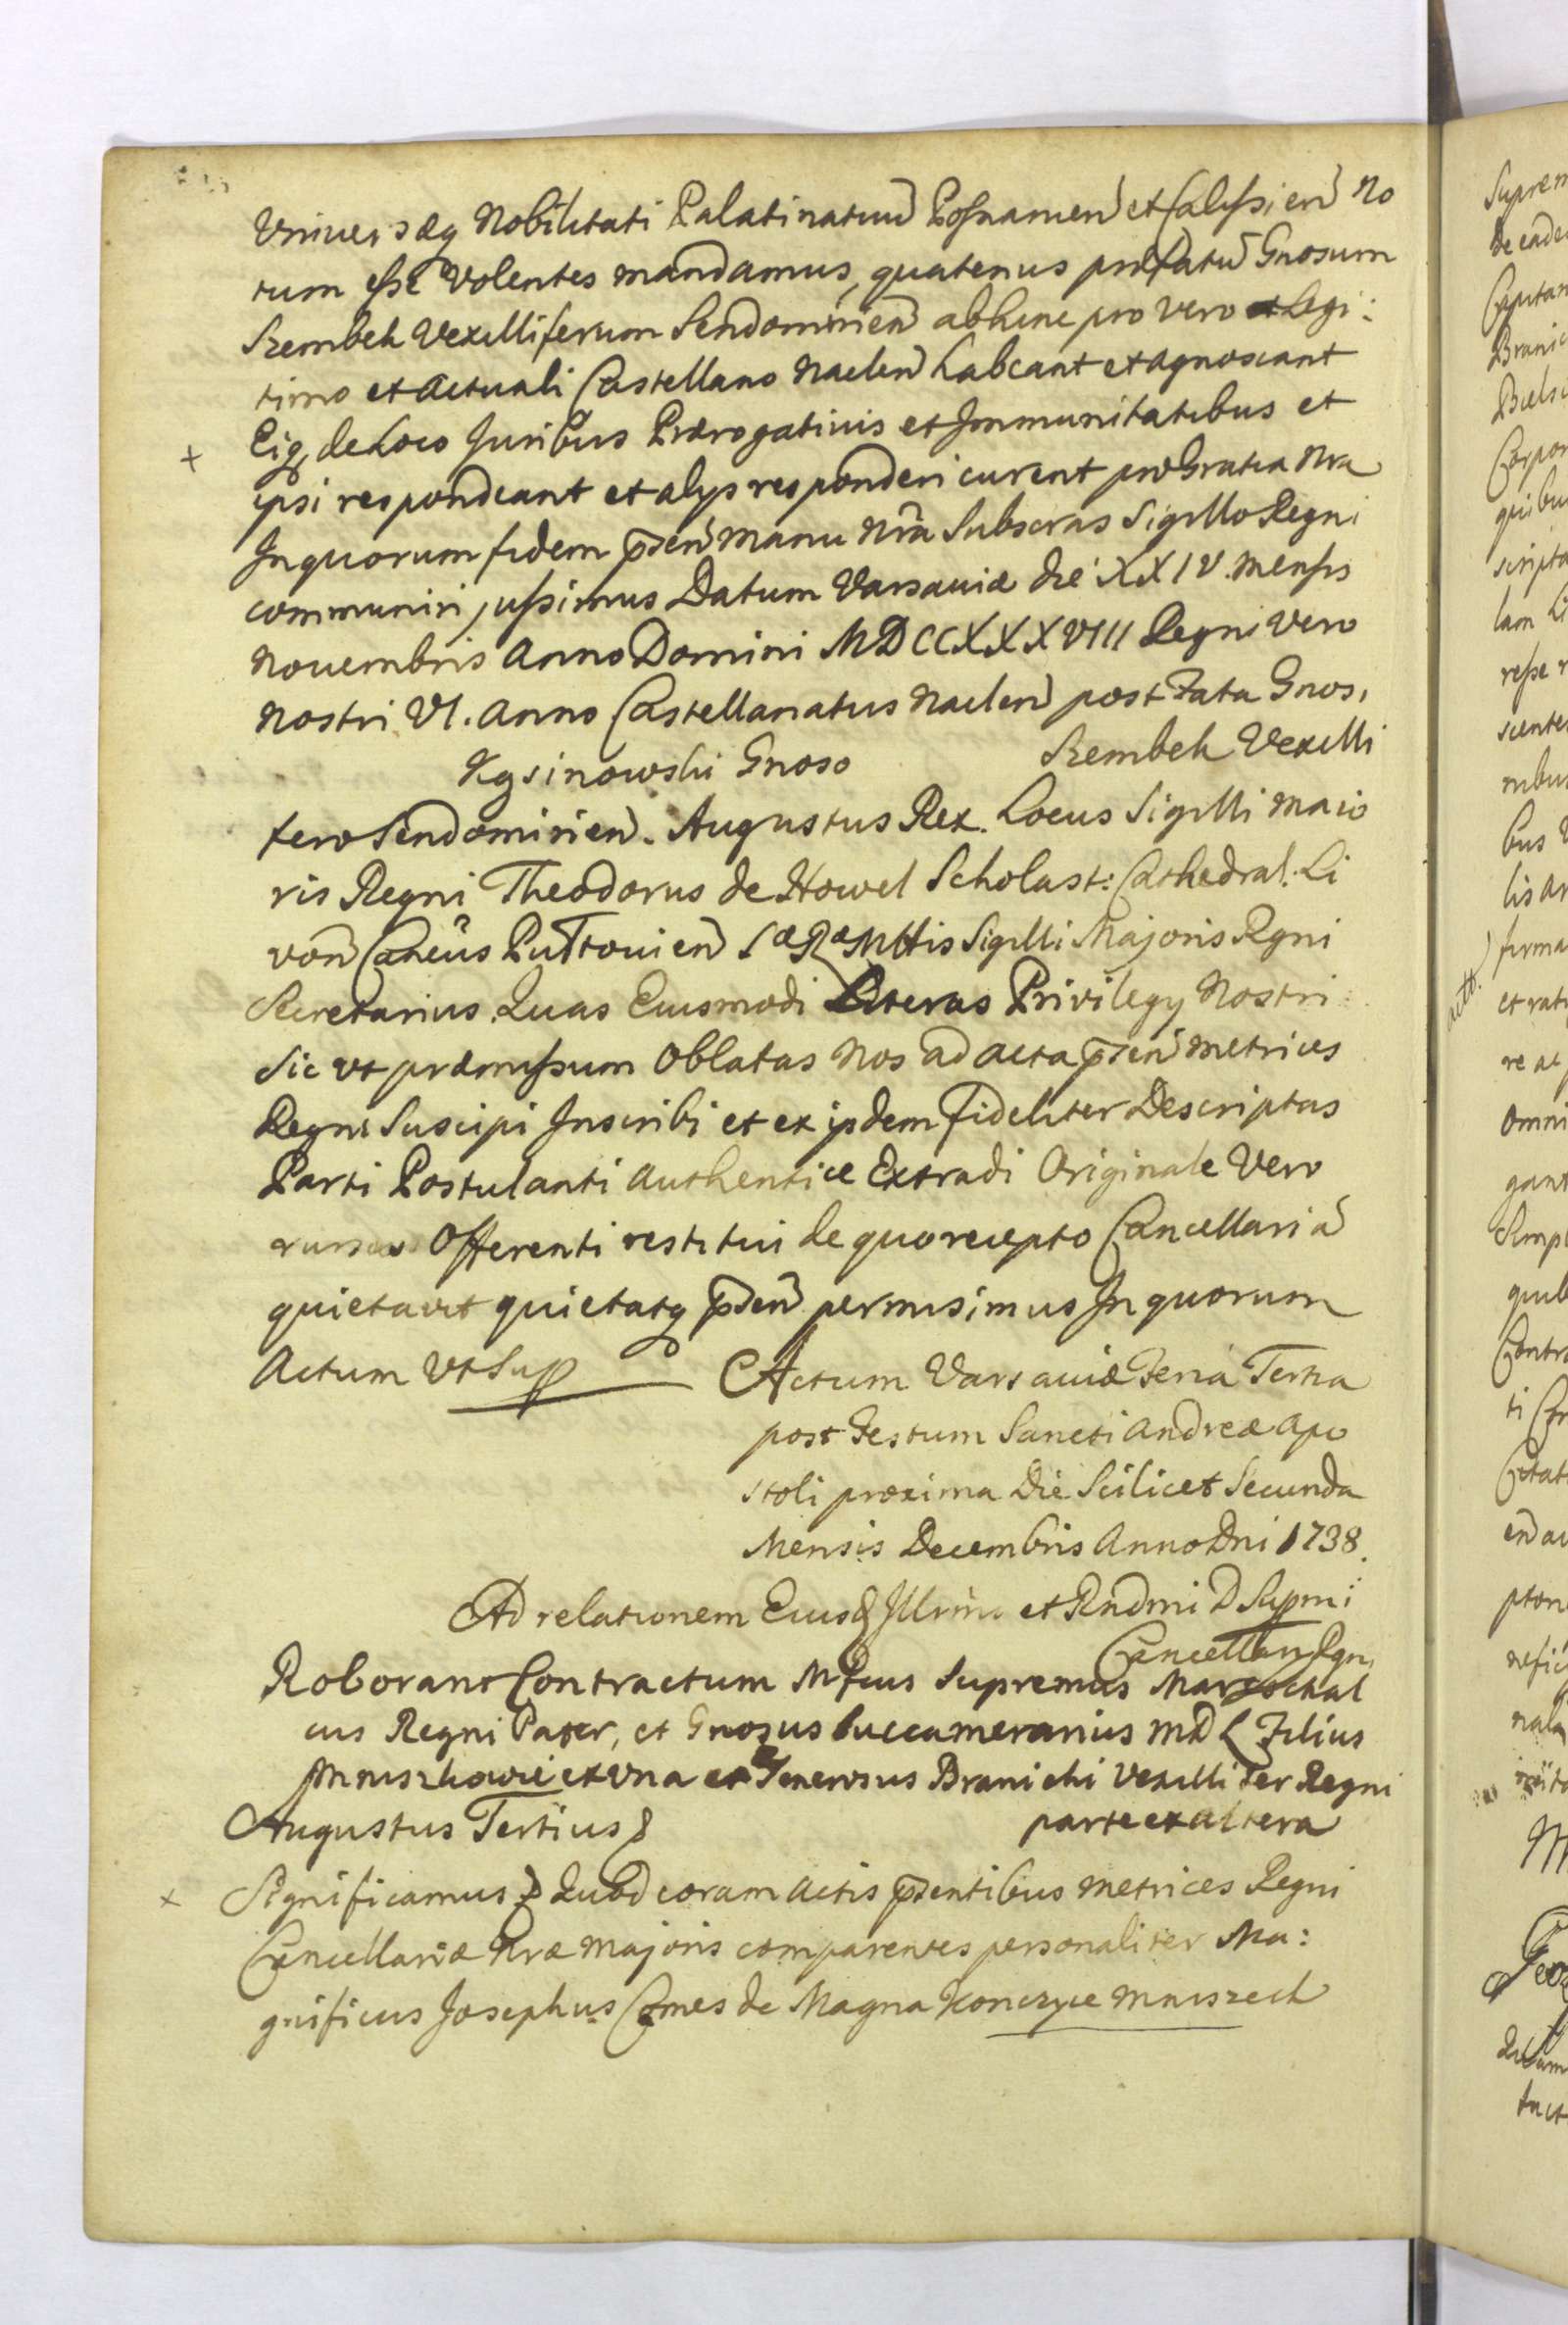 Vniversæq Nobilitati Palatinatuū Posnanien et Calissien no
tum esse Volentes mandamus, quatenus præfatū Gnosum
Szembek Vexilliferum Sendomirien abhinc pro vero et Legi:
timo et actuali Castellano Naclen habeant et agnoscant
+ Eiq, de Loco Juribus Prærogativis et Immunitatibus et
ipsi respondeant et alys responderi curent pro Gratia Nra
In quorum fidem p̄sen manu Nrā Subscras Sigillo Regni
communiri jussimus Datum Varsaviæ die XXIV. mensis
Novembris Anno Domini MDCCXXXVIII Regni Vero
Nostri VI. Anno Castellanatus Naclen post Fata Gnosi
Kgsinowski Gnoso Szembek Vexilli
fero Sendomirien. Augustus Rex. Locus Sigilli maio
ris Regni Theodorus de Howel Scholast: Cathedral. Li
von Caneūs Pultovien SæRæMttis Sigilli Majoris Regni
Secretarius. Quas Eiusmodi Literas Privilegy Nostri
Sic ut præmissum Oblatas Nos ad acta p̄sen metrices
Regni Suscipi Inscribi et ex ijsdem fideliter Descriptas
Parti Postulanti Authentice Extradi Originale Vero
rursus Offerenti restitui de quo recepto Cancellariā
quietavit quietatq p̄sen permisimus In quorum
Actum Vt Sup
Actum Varsaviæ Feria Tertia
post Festum Sancti Andreæ Apo
stoli proxima Die Scilicet Secunda
Mensis Decembris Anno Dni 1738.
Ad relationem Eiusd Illrmi et Rndmi D Supmi
Cancellarij Rgni
Roborant Contractum Mficus Supremus Mareschal
cus Regni Pater, et Gnosus Succamerarius MDL Filius
Mniszkowie ex vna et Generosus Branicki Vexillifer Regni
Augustus Tertius & parte ex altera
+ Significamus & Quod coram Actis p̄sentibus Metrices Regni
Cancellariæ Nræ Majoris comparentes personaliter Ma:
gnificus Josephus Comes de Magna Konczyce Mniszech